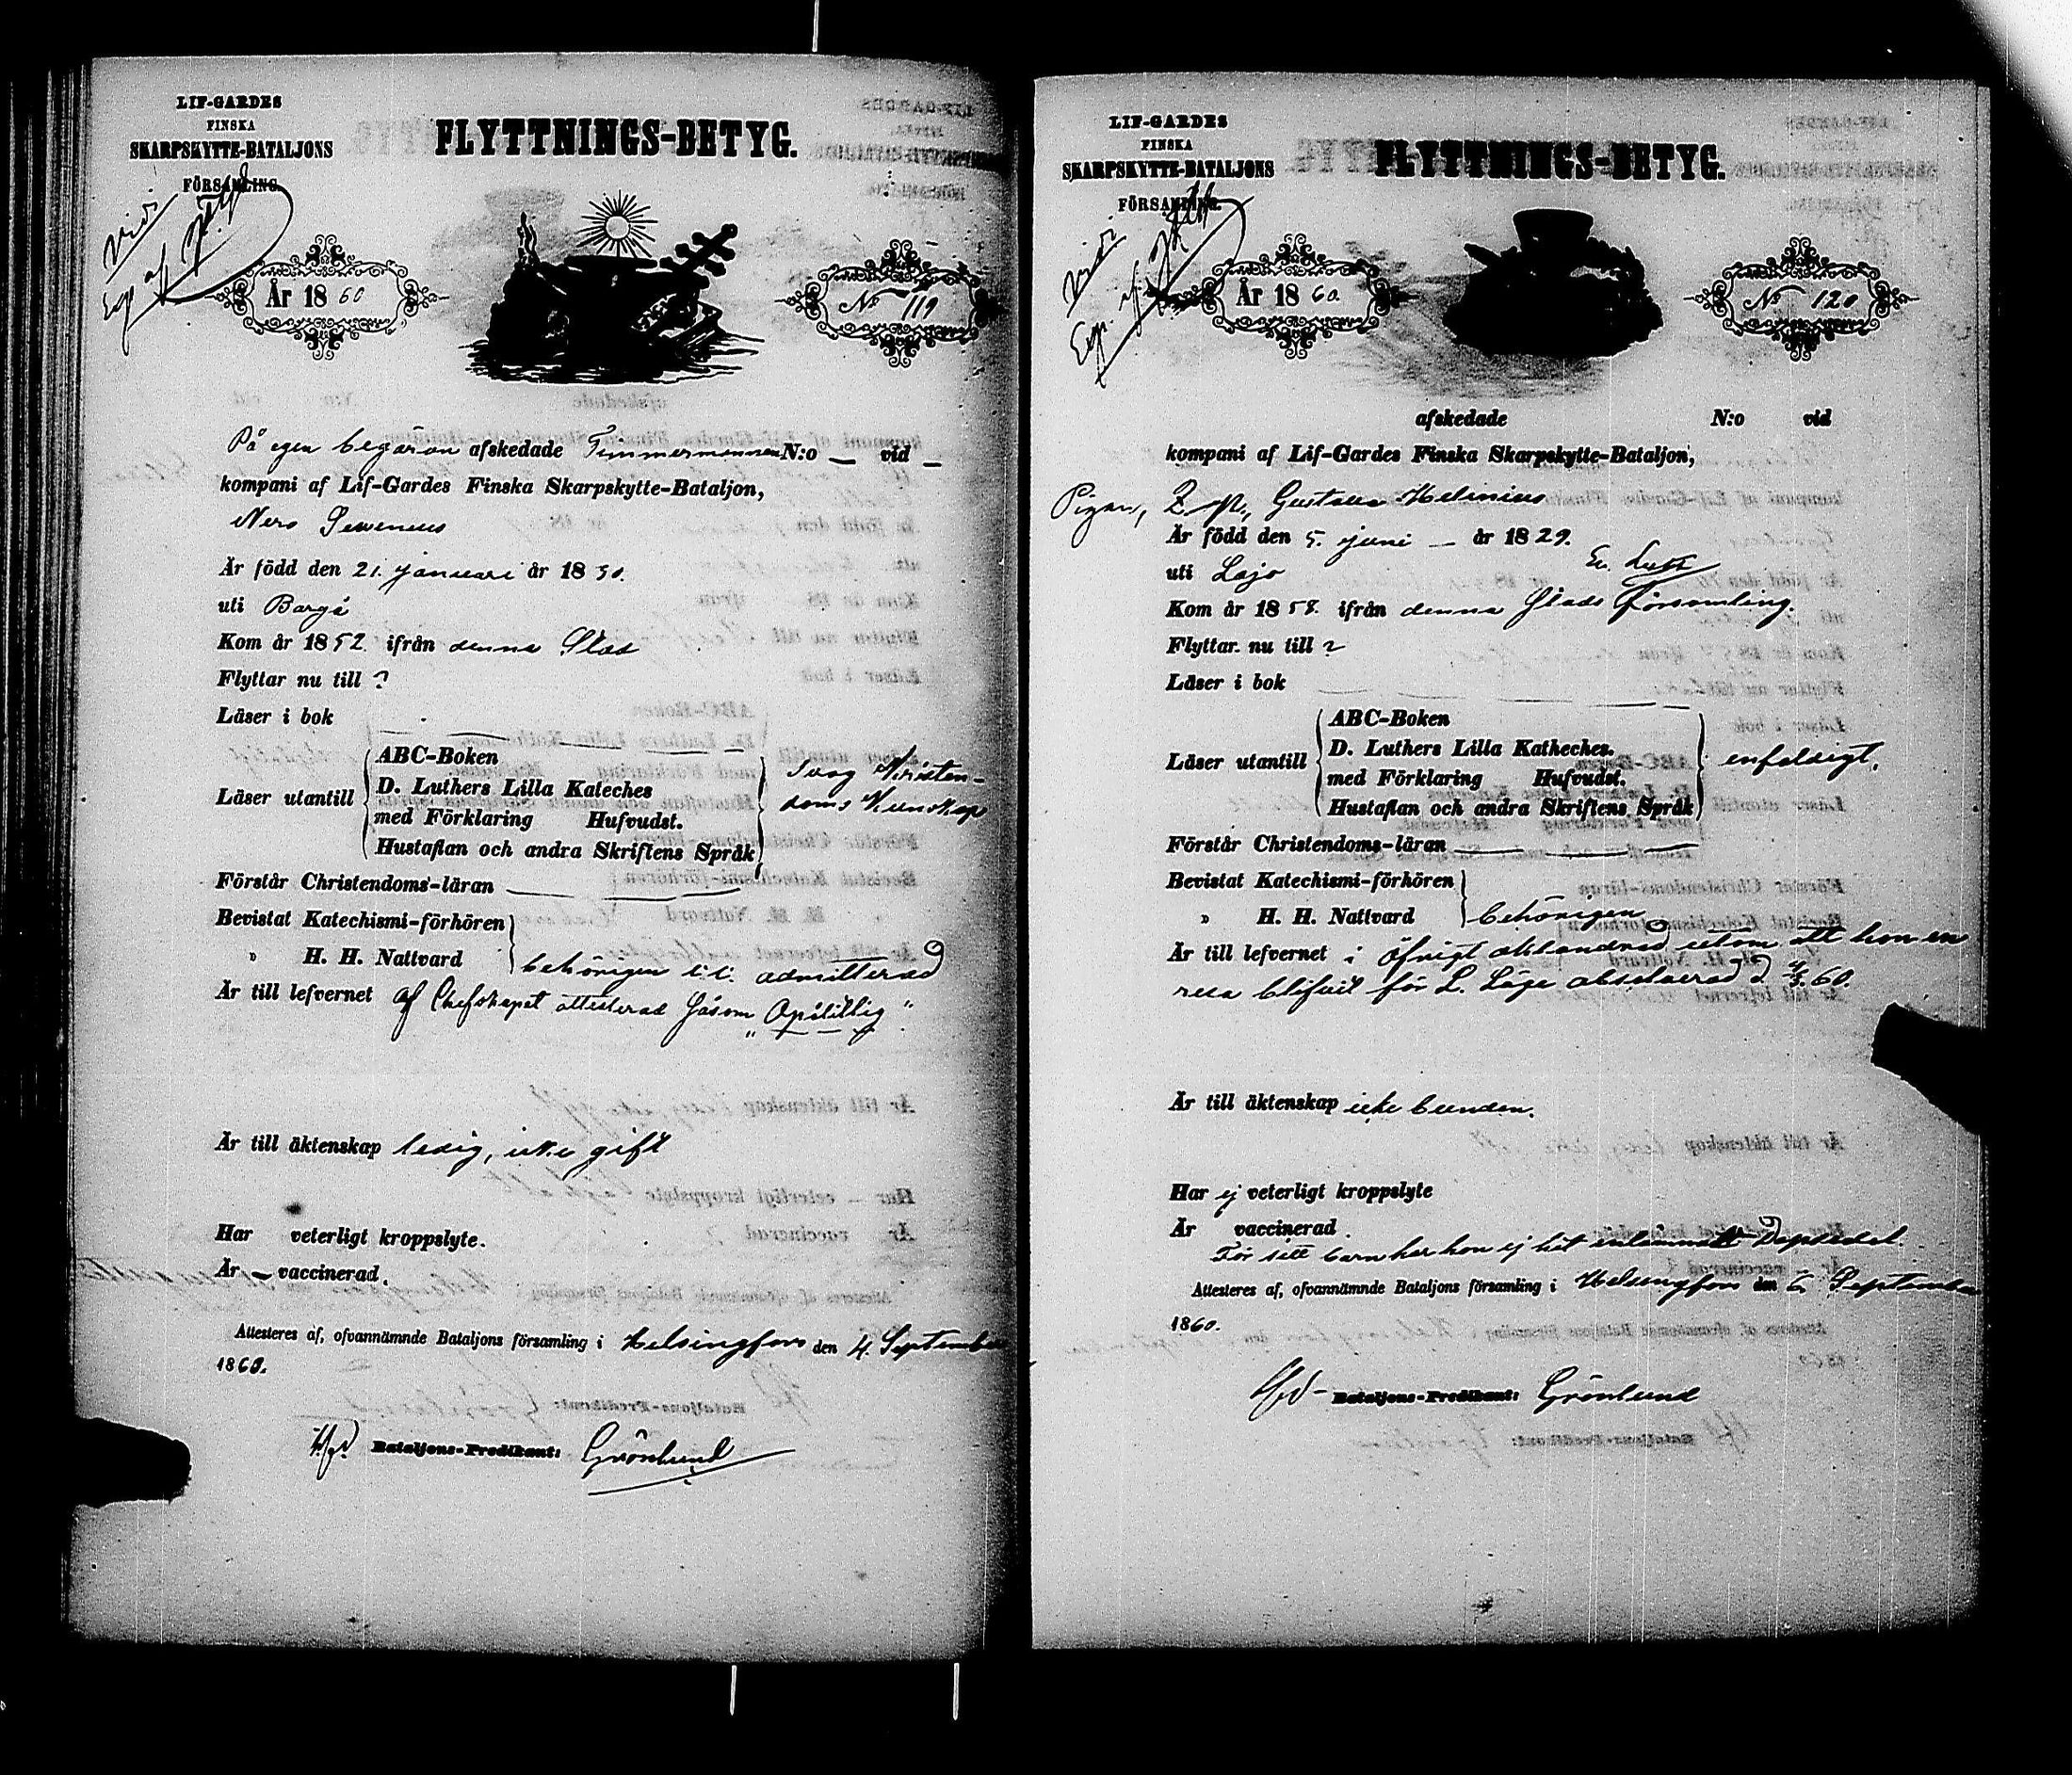 LIF-GARDES
FINSKA
SKARPSKYTTE-BATALJONS
FÖRSAMLING.
FLYTTNINGS-BETYG.
Vidi
Exp. af
År 1860
No 119
På egen begäran afskedade Timmermannen N:o — vid —
kompani af Lif-Gardes Finska Skarpskytte-Bataljon,
Är född den 21. Januari år 1830.
uti Borgå
Kom år 1852. ifrån denna Stad
Flyttar nu till ?
Läser i bok
Läser utantill
ABC-Boken
D. Luthers Lilla Kateches
med Förklaring Hufvudst.
Hustaflan och andra Skriftens Språk
Svag Kristen-
doms Kunskap
Förstår Christendoms-läran
Bevistat Katechismi-förhören
" H. H. Nattvard
behörigen admitterad
Är till lefvernet af Chefskapet attesterad såsom
Är till äktenskap ledig, icke gift
Har veterligt kroppslyte.
Är — vaccinerad.
Attesteres af, ofvannämnde Bataljons församling i Helsingfors den 4. September
1860.
Bataljons-Predikant: Grönlund
LIF-GARDES
FINSKA
SKARPSKYTTE-BATALJONS
FÖRSAMLING.
FLYTTNINGS-BETYG.
Vidi
Exp. af
År 1860.
No 120
afskedade N:o vid
kompani af Lif-Gardes Finska Skarpskytte-Bataljon,
Pigan, Gustava Helenius
Är född den 5. Juni — år 1829.
uti Lojo
Kom år 1858. ifrån denna Stads Ev. Luth. Församling.
Flyttar nu till ?
Läser i bok
Läser utantill
ABC-Boken
D. Luthers Lilla Katheches.
med Förklaring Hufvudst.
Hustaflan och andra Skriftens Språk
enfaldigt.
Förstår Christendoms-läran
Bevistat Katechismi-förhören
" H. H. Nattvard
behörigen
Är till lefvernet i öfrigt oklandrad utom att hon en
resa blifvit för L. Läge absolverad d. 60.
Är till äktenskap icke bunden.
Har ej veterligt kroppslyte
Är vaccinerad.
För sitt barn har hon ej hit inlemnat Dopsedel.
Attesteres af, ofvannämnde Bataljons församling i Helsingfors den 6. September
1860.
Bataljons-Predikant: Grönlund